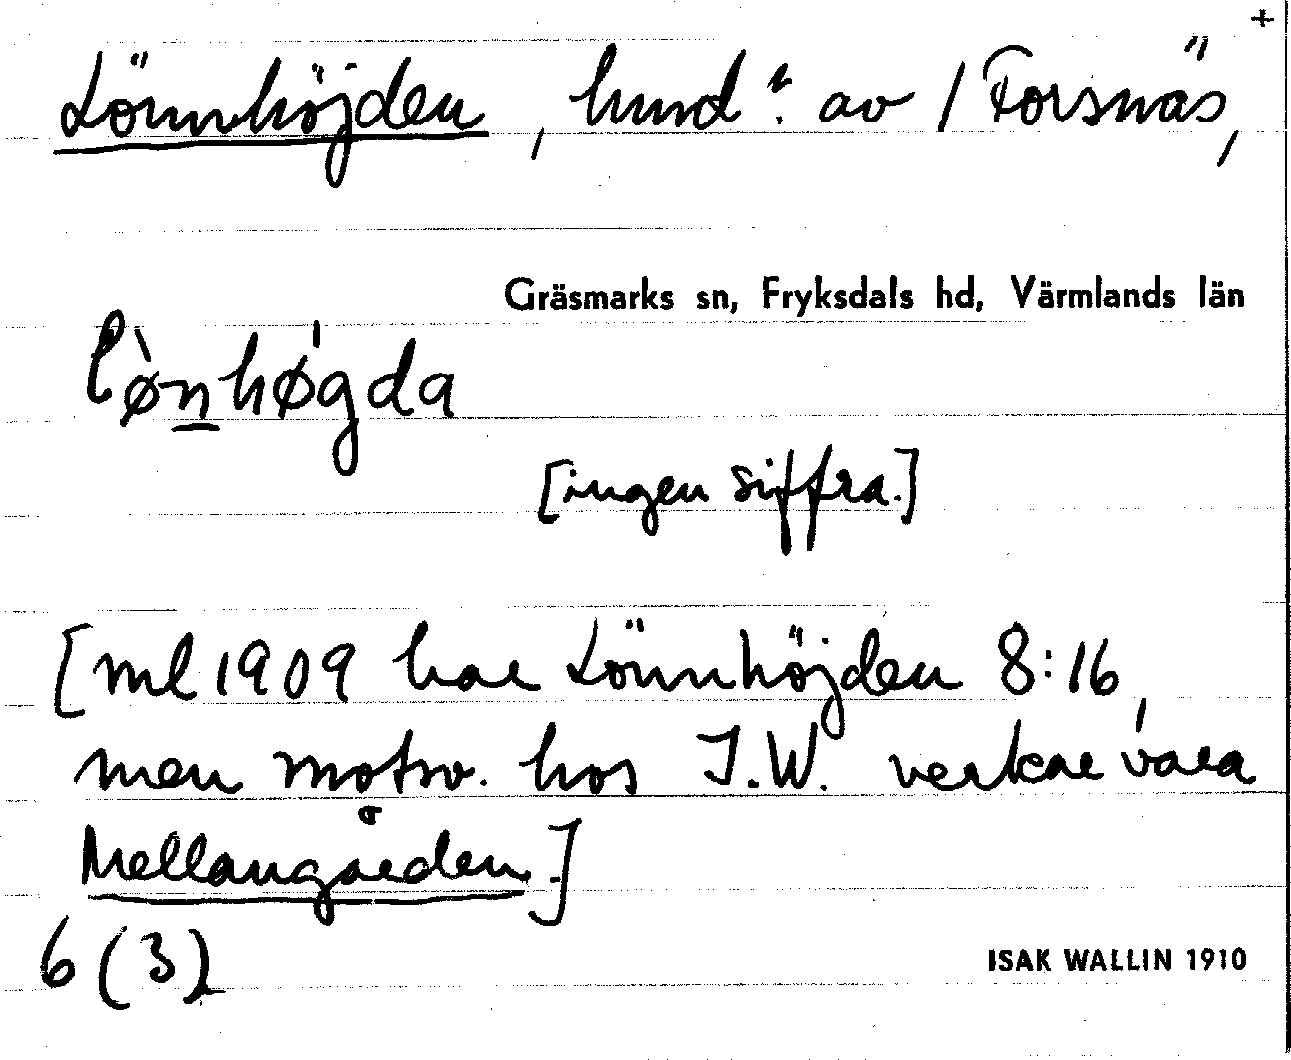 +
Lönnhöjden, hmd. av 1 Forsnäs,
Gräsmarks sn, Fryksdals hd, Värmlands län
lø̀nhøgda
[ingen siffra.]
[ml 1909 har Lönnhöjden 8:16,
men motsv. hos I.W. verkar vara
Mellangården.]
6 (3)
ISAK WALLIN 1910